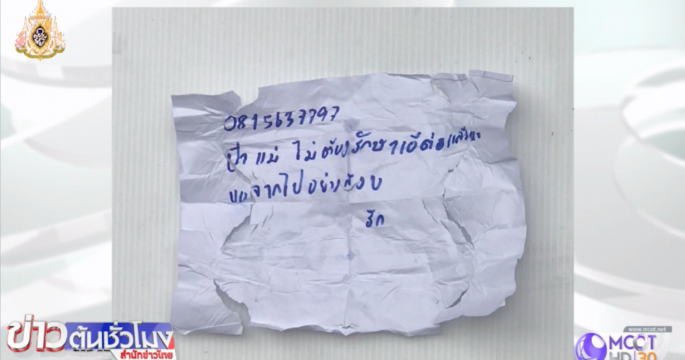 0815637797
ป๊า แม่ ไม่ต้องรักษาเอ๋ต่อแล้วนะ
ขอจากไปอย่างสงบ
รัก
ข่าวต้นชั่วโมง
สำนักข่าวไทย
www.mcot.net
MCOT
HD 30